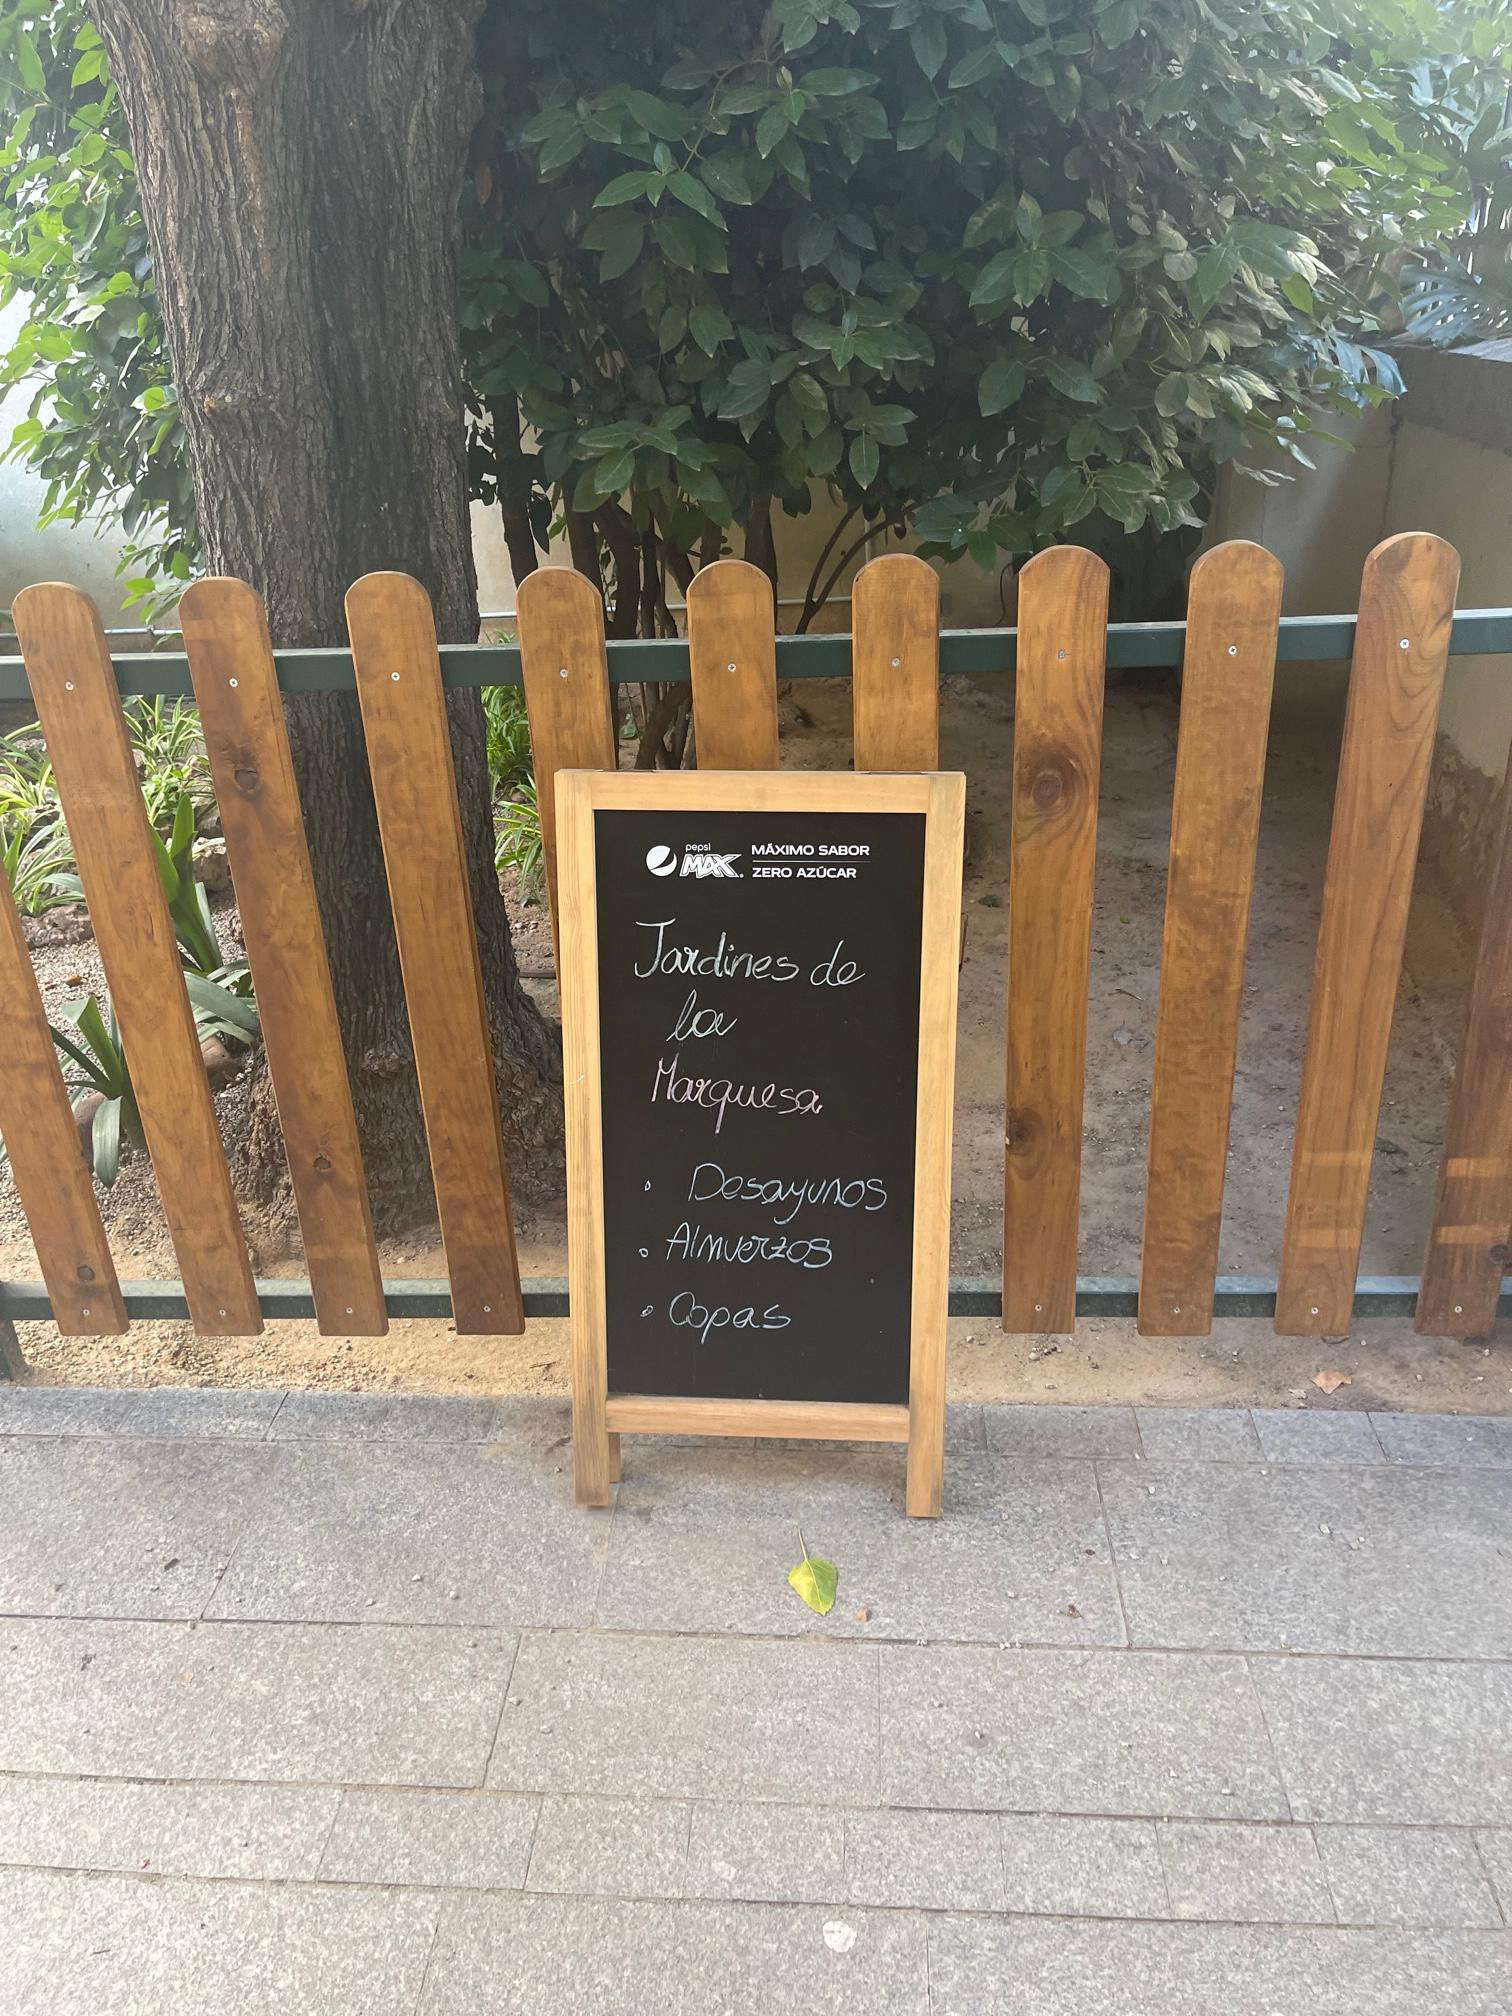 pepsi MAX. MÁXIMO SABOR
ZERO AZÚCAR
Jardines de
la
Marquesa
• Desayunos
• Almuerzos
• Copas